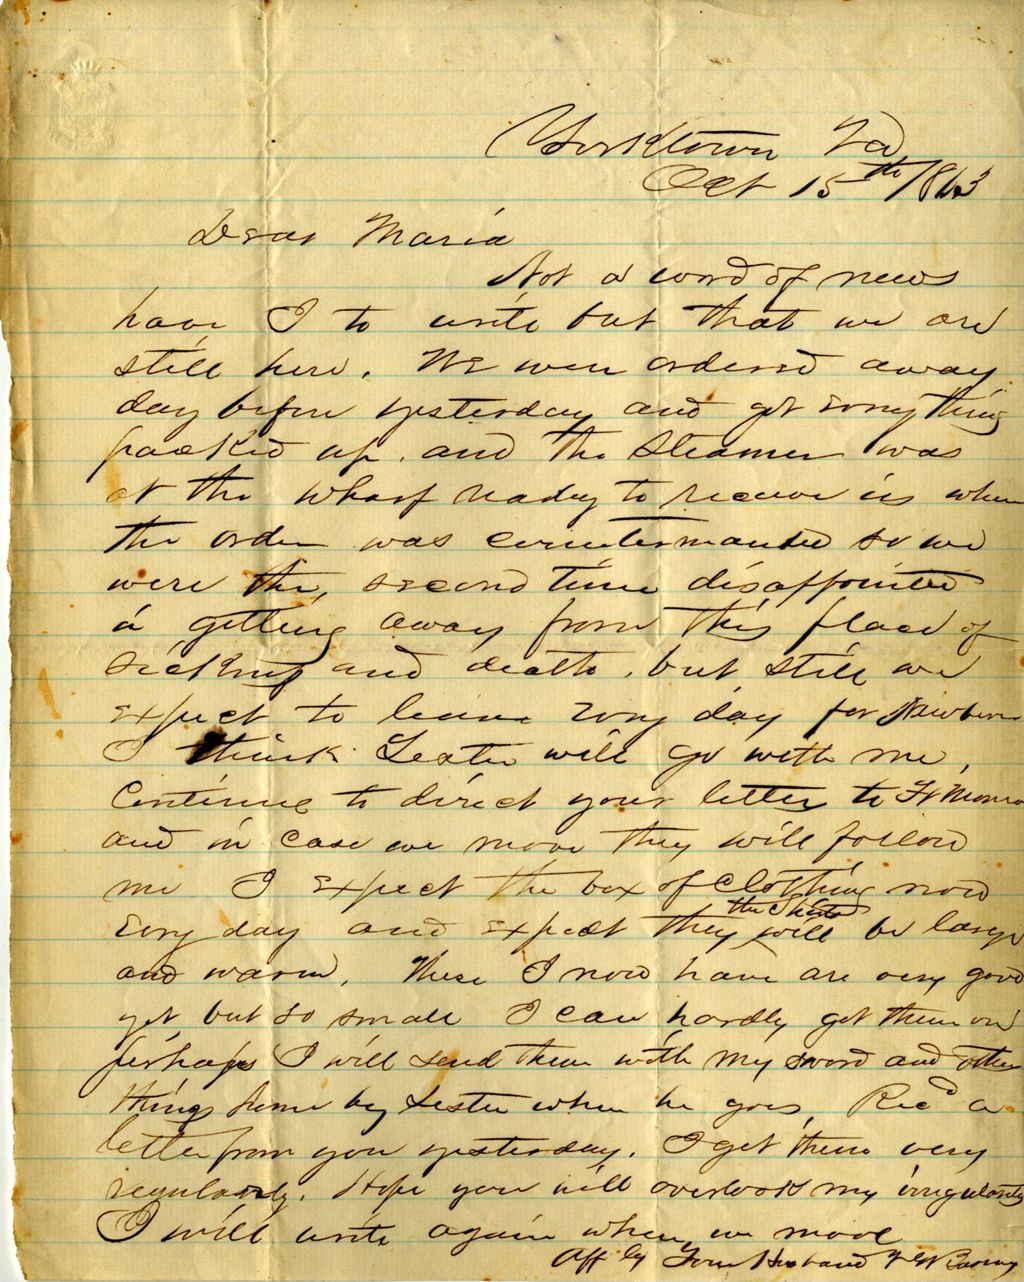 Yorktown Va
Oct 15th 1863
Dear Maria
Not a word of news
have I to write but that we are
still here. We were ordered away
day before yesterday and got every thing
packed up, and the steamer was
at the wharf ready to receive us when
the order was countermanded so we
were the second time disappointed
a getting away from this place of
sickness and death, but still we
expect to leave every day for Newbern
I think Lester will go with me,
Continue to direct your letter to Ft Monro
and in case we move they will follow
me I expect the box of clothing now
every day and expect they the shirts will be large
and warm. These I now have are very good
yet, but so small I can hardly get them on
perhaps I will send them with my sword and other
things home by Lester when he goes, Recd a
letter from you yesterday. I get them very
regularly. Hope you will overlook my irregularity
I will write again when we move
Aff ly Your Husband